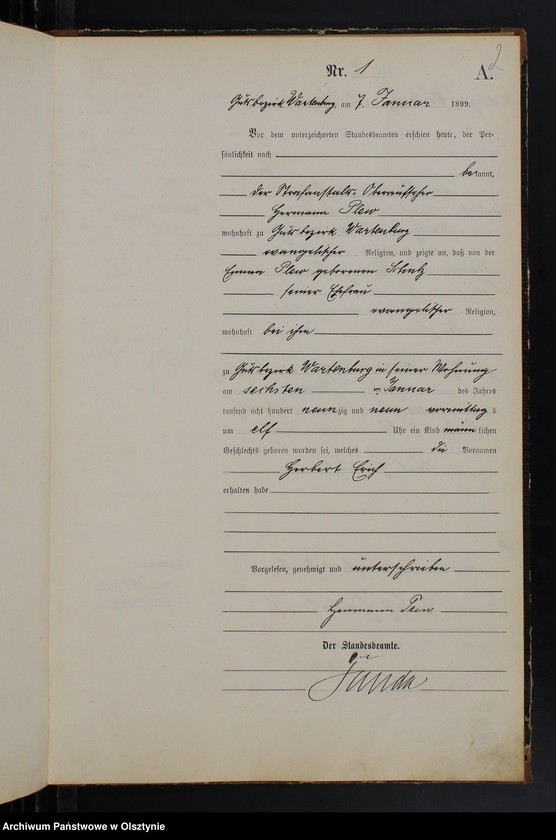 2
Nr. 1 A.
Gutsbezirk Wartenburg, am 7. Januar 1899.
Vor dem unterzeichneten Standesbeamten erschien heute, der Per-
sönlichkeit nach
bekannt,
der Strafanstalts-Oberaufseher
Hermann Plew
wohnhaft zu Gutsbezirk Wartenburg
evangelischer Religion, und zeigte an, daß von der
Emma Plew geborenen Schulz
seiner Ehefrau
evangelischer Religion,
wohnhaft bei ihm
zu Gutsbezirk Wartenburg in seiner Wohnung
am sechsten Januar des Jahres
tausend acht hundert neunzig und neun vormittags
um elf Uhr ein Kind männlichen
Geschlechts geboren worden sei, welches die Vornamen
Herbert Erich
erhalten habe
Vorgelesen, genehmigt und unterschrieben
Hermann Plew
Der Standesbeamte.
Archiwum Państwowe w Olsztynie